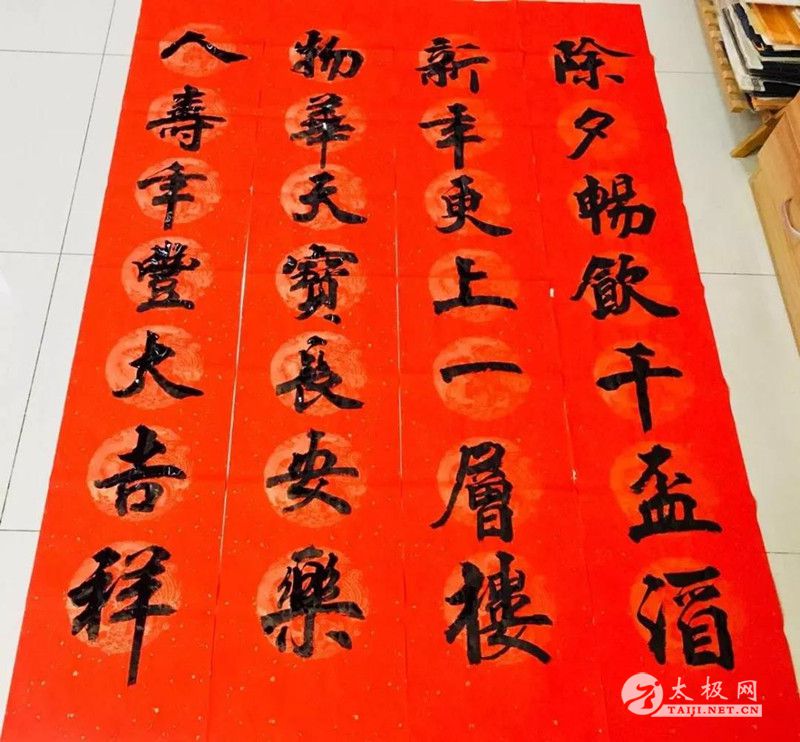 除夕暢飲千盃酒
新年更上一層樓
物華天寳長安樂
人壽年豐大吉祥
太极网
TAIJI.NET.CN